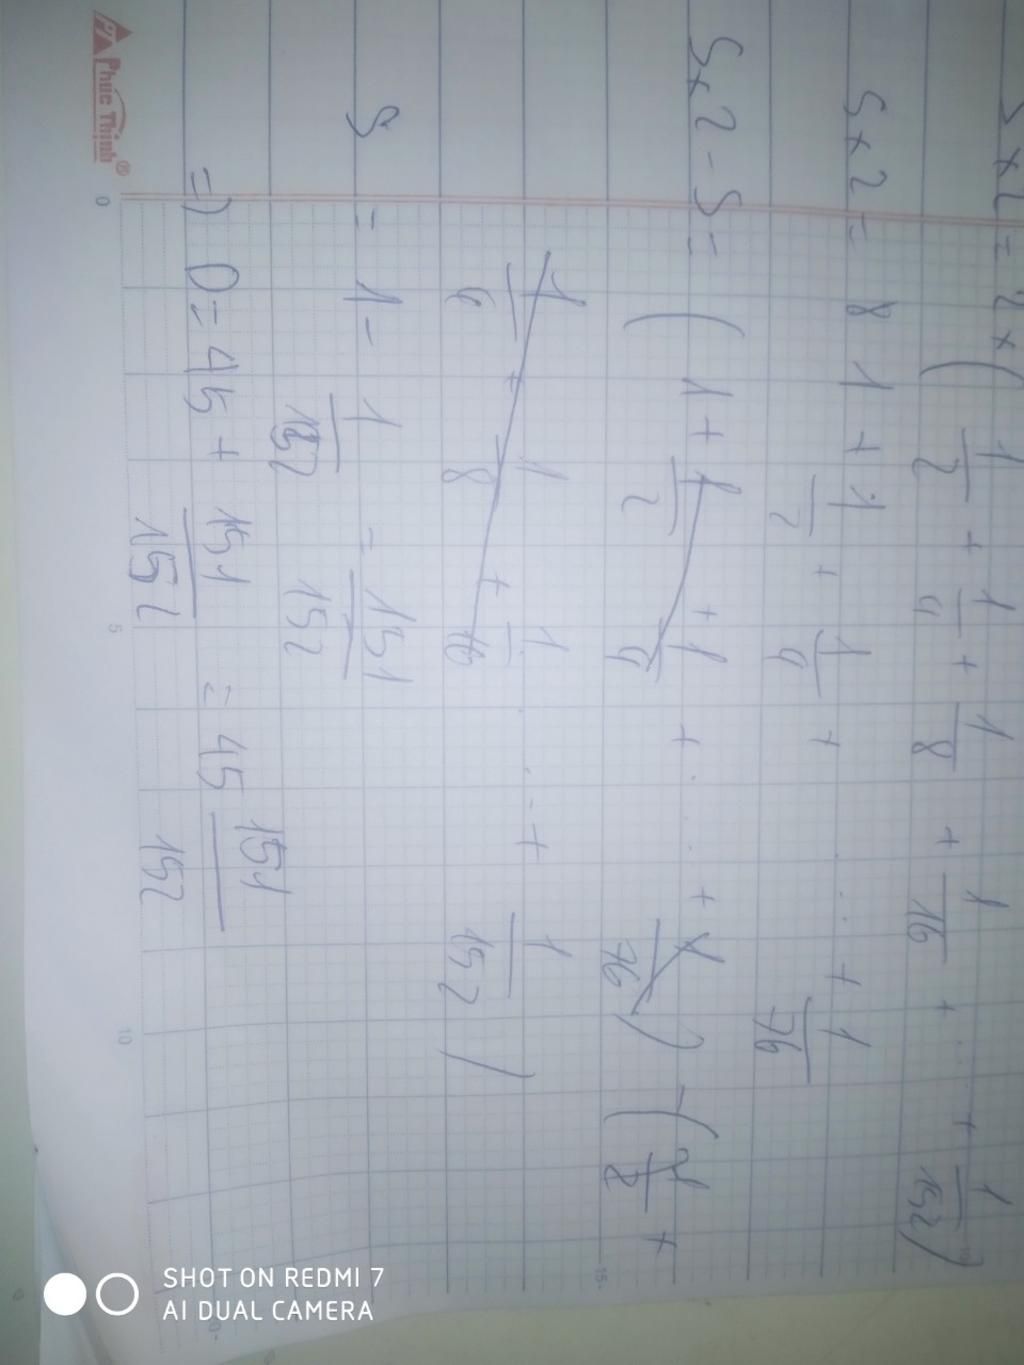 S x 2 = 2 x ( 1/2 + 1/4 + 1/8 + 1/16 + ... + 1/152 )
S x 2 = 1 + 1/2 + 1/4 + ... + 1/76
S x 2 - S = ( 1 + 1/2 + 1/4 + ... + 1/76 ) - ( 1/2 +
1/4 + 1/8 + 1/16 ... + 1/152 )
S = 1 - 1/152 = 151/152
=> D = 45 + 151/152 = 45 151/152
Phúc Thịnh®
0 5 10 15
SHOT ON REDMI 7
AI DUAL CAMERA